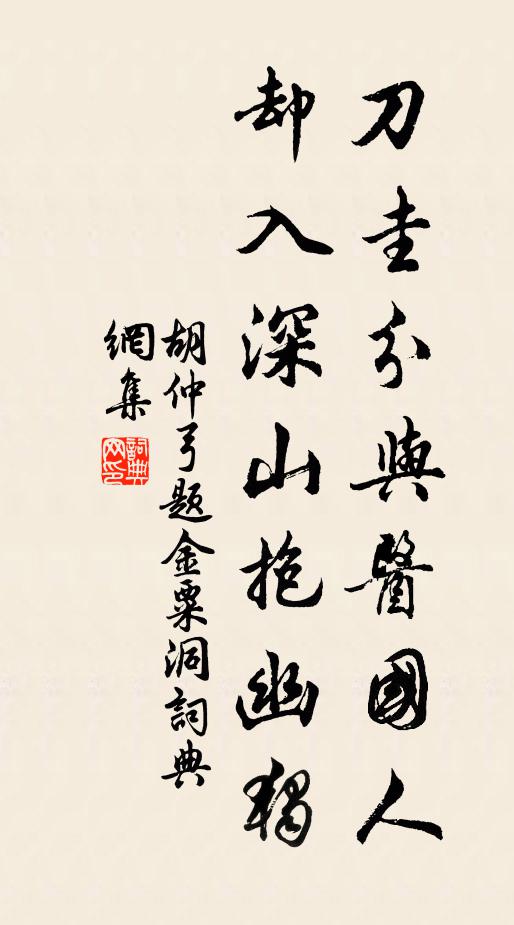 刀圭分與醫國人
却入深山抱幽獨
胡仲弓題金粟洞詞典
網集
詞典網印